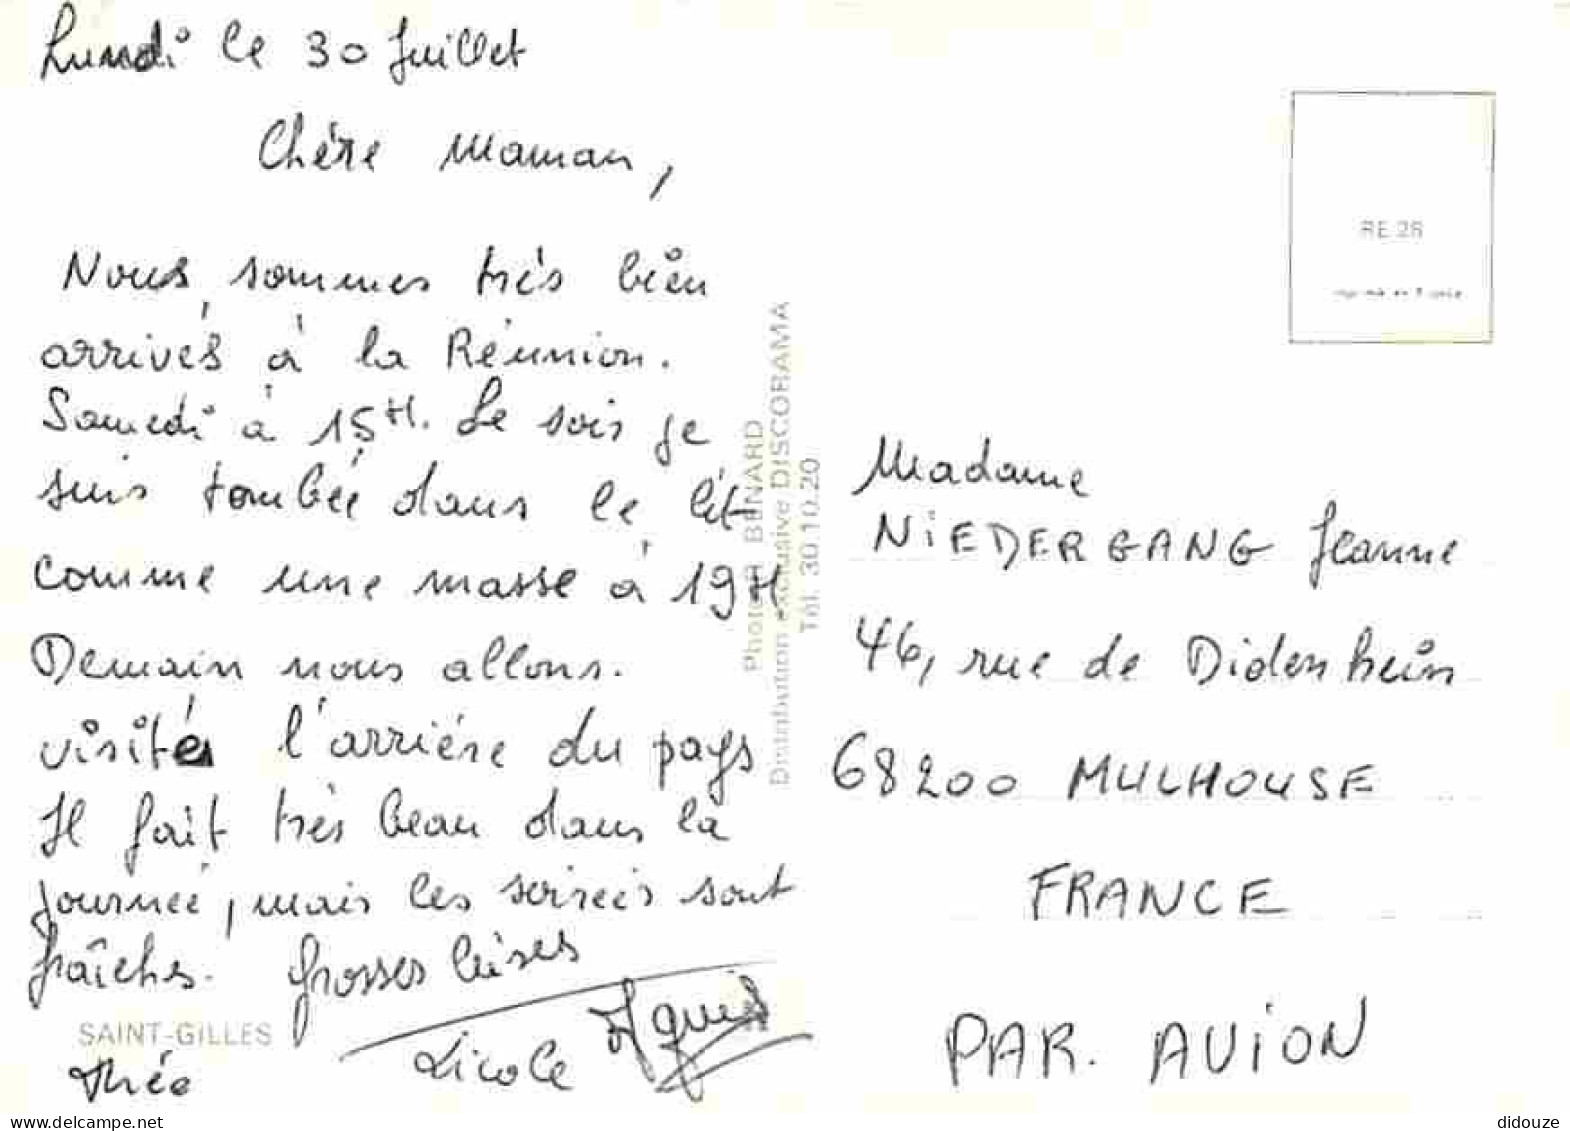 Lundi le 30 Juillet
Chére Maman,
Nous sommes trés bien
arrivés à la Réunion.
Samedi à 15H. Le soir je
suis tombée dans le lit
comme une masse à 19H.
Demain nous allons.
visités l'arriére du pays
Il fait trés beau dans la
journée, mais les soirées sont
fraîches. Grosses bises
SAINT-GILLES
Théo
Nicole
Agnès
Photo BENARD
Distribution exclusive DISCORAMA
Tél. 30.10.20
RE 26
Imprimé en France
Madame
NiEDERGANG Jeanne
46, rue de Didenheim
68200 MULHOUSE
FRANCE
PAR. AViON
delcampe.net
didouze